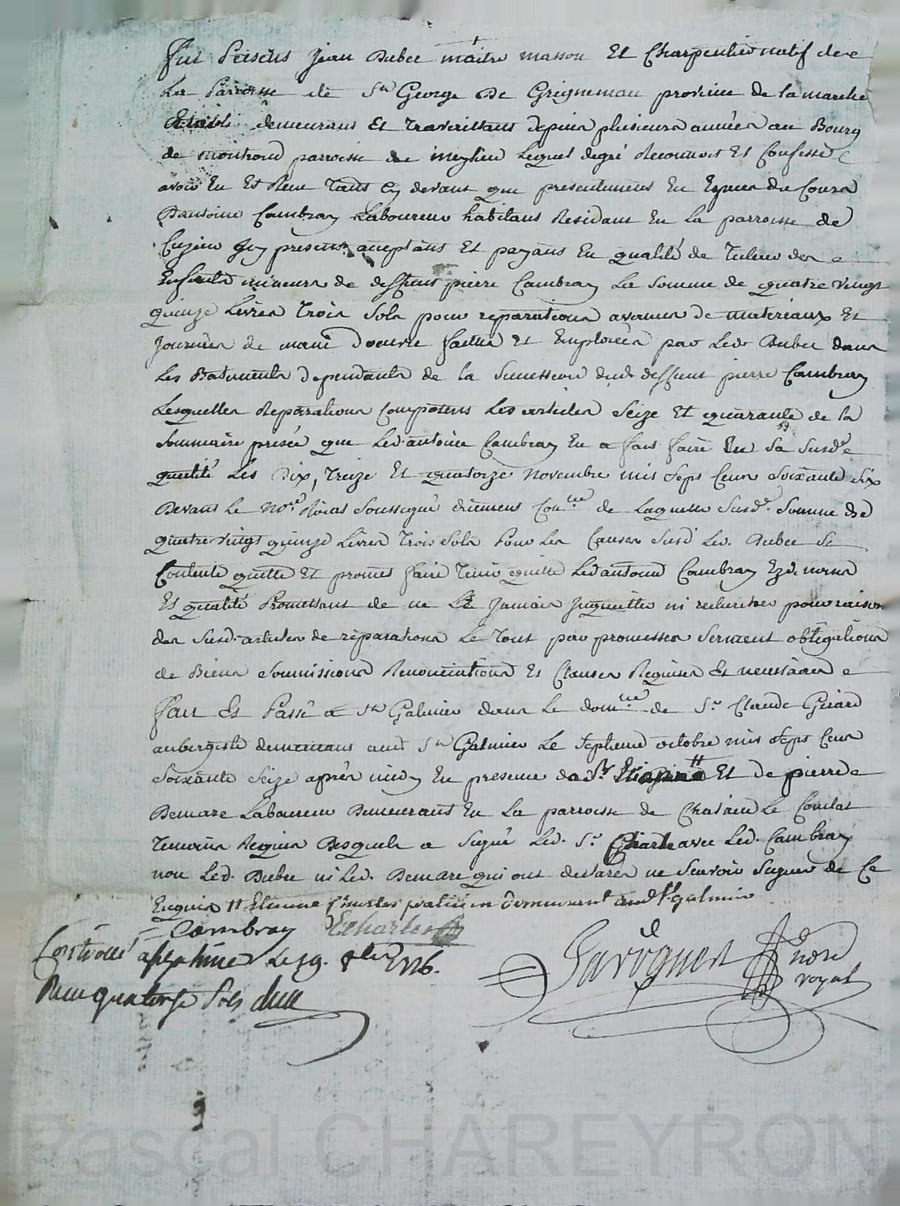 fut Présens Jean Dubec maître masson Et Charpentier natif de
La Paroisse de St George De Grigneman province de la marche
demeurant Et Travaillant depuis plusieurs années au Bourg
de montrond parroisse de meylieu Lequel degré Reconnoit Et Confesse
avoir Eu Et Reçu Tant Cy devant que présentement En Especes du Cours
D'antoine Cambray Laboureur habitant Résidant En La parroisse de
Cuzieu Icy présent acceptant Et payant En qualité de Tuteur des
Enfants mineurs de deffunt pierre Cambray La Somme de quatre vingt
quinze Livres Trois Sols pour réparations avances de matériaux Et
Journées de main d'oeuvre faittes Et Employées par Led. Dubec dans
Les Batiments dépendants de la Succession dud. deffunt pierre Cambray
Lesquelles Réparations Composent Les articles Seize Et quarante de la
Sommaire prisée que Led. antoine Cambray En a fait faire En Sa Susd.e
qualité Les Dix, Treize Et quatorze Novembre mil Sept Cent Soixante Six
Devant Le No.re Roial Soussigné de Laquelle Susd.e Somme de
quatre vingt quinze Livres Trois Sols Pour Les Causes Susd. Led. Dubec Se
Contente quitte Et promet faire Tenir quitte Led. antoine Cambray Ezd. noms
Et qualité Promettant de ne Le Jamais Inquietter ni rechercher pour raison
des Susd. articles de réparations Le Tout par promesses Serment obligations
de Biens Soumissions Renonciations Et Clauses Requises Et nécessaires
fait Et Passé a St Galmier dans Le dom.lle de Sr Claude Girard
aubergiste demeurant aud. St Galmier Le Septieme octobre mil Sept Cent
Soixante Seize après midy En présence de Sr Et de pierre
Demare Laboureur Demeurant En La parroisse de Chatain Le Comtat
Temoins Requis Desquels a Signé Led. Sr Charles avec Led. Cambray
non Led. Dubec ni Led. Demare qui ont déclaré ne Scavoir Signer de Ce
Enquis 11 Etienne Charles praticien demeurant aud. St galmier
Cambray Echarles
Controllé a St galmier Le 19. 8bre 1776.
Reçu quatorze Sols
Notre
royal
Pascal CHAREYRON